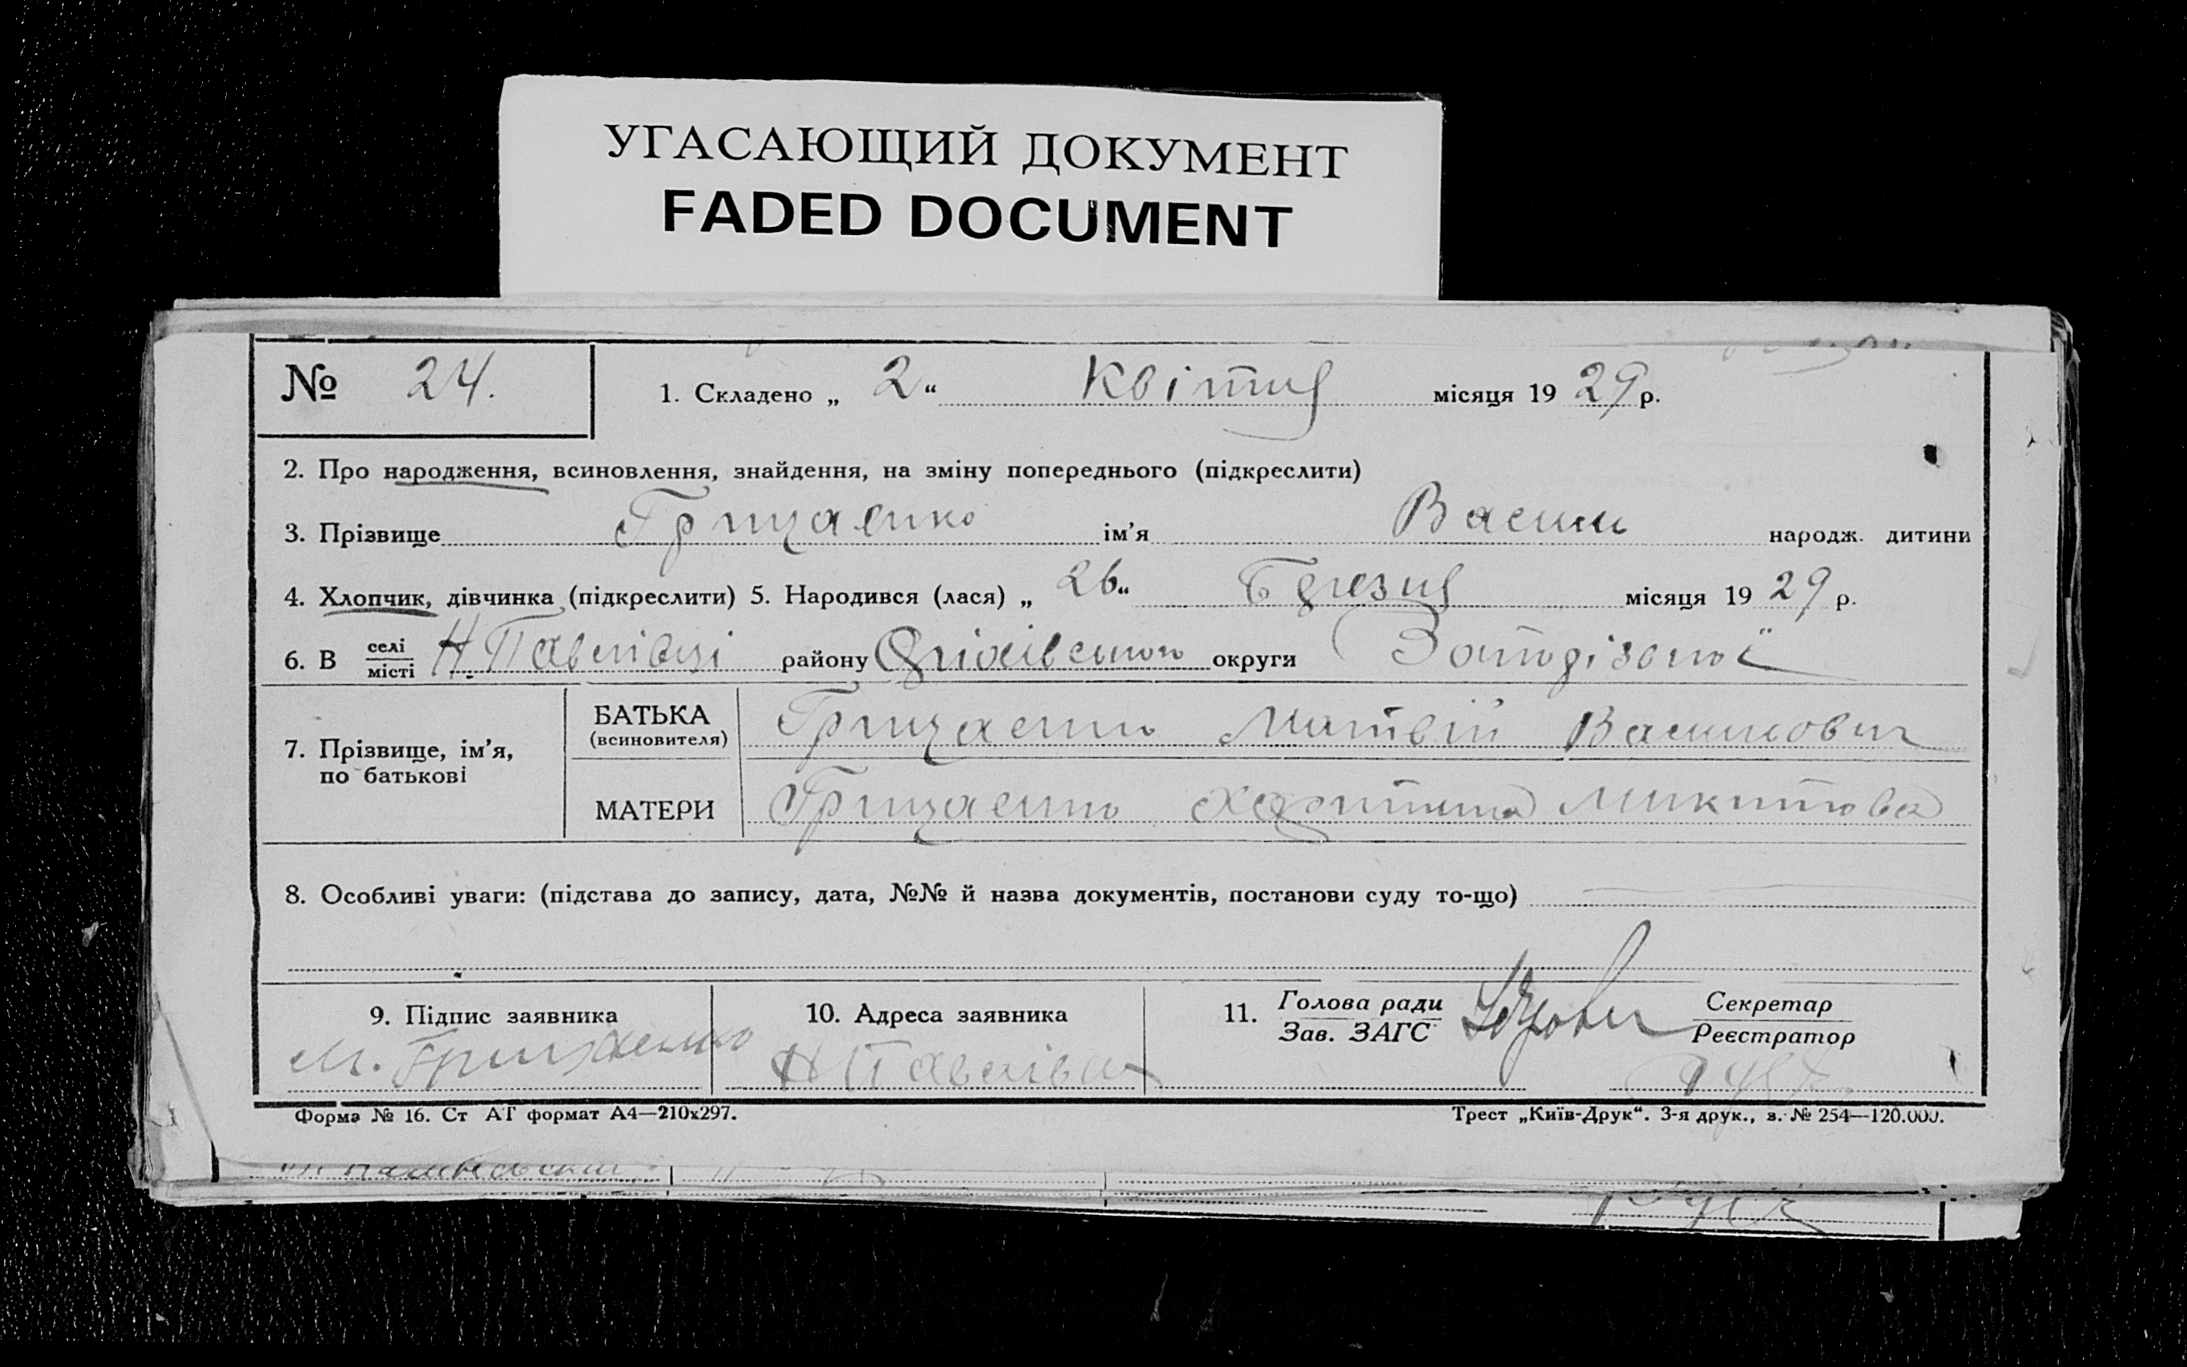 УГАСАЮЩИЙ ДОКУМЕНТ
FADED DOCUMENT
№ 24.
1. Складено „ 2 “ Квітня місяця 19 29 р.
2. Про народження, всиновлення, знайдення, на зміну попереднього (підкреслити)
3. Прізвище Грицаенко ім’я Васил народж. дитини
4. Хлопчик, дівчинка (підкреслити) 5. Народився (лася) „ 26 “ Березня місяця 19 29 р.
6. В селі місті Н. Павлівці району округи Запорізької
7. Прізвище, ім’я, по батькові
БАТЬКА (всиновителя) Грицаенко Матвій Василович
МАТЕРИ Грицаенко Харитина Микитова
8. Особливі уваги: (підстава до запису, дата, №№ й назва документів, постанови суду то-що)
9. Підпис заявника
М. Грицаенко
10. Адреса заявника
Н Павлівка
11. Голова ради
Зав. ЗАГС
Секретар
Реєстратор
Форма № 16. Ст АТ формат А4—210х297.
Трест „Київ-Друк“. 3-я друк., з. № 254—120.000.